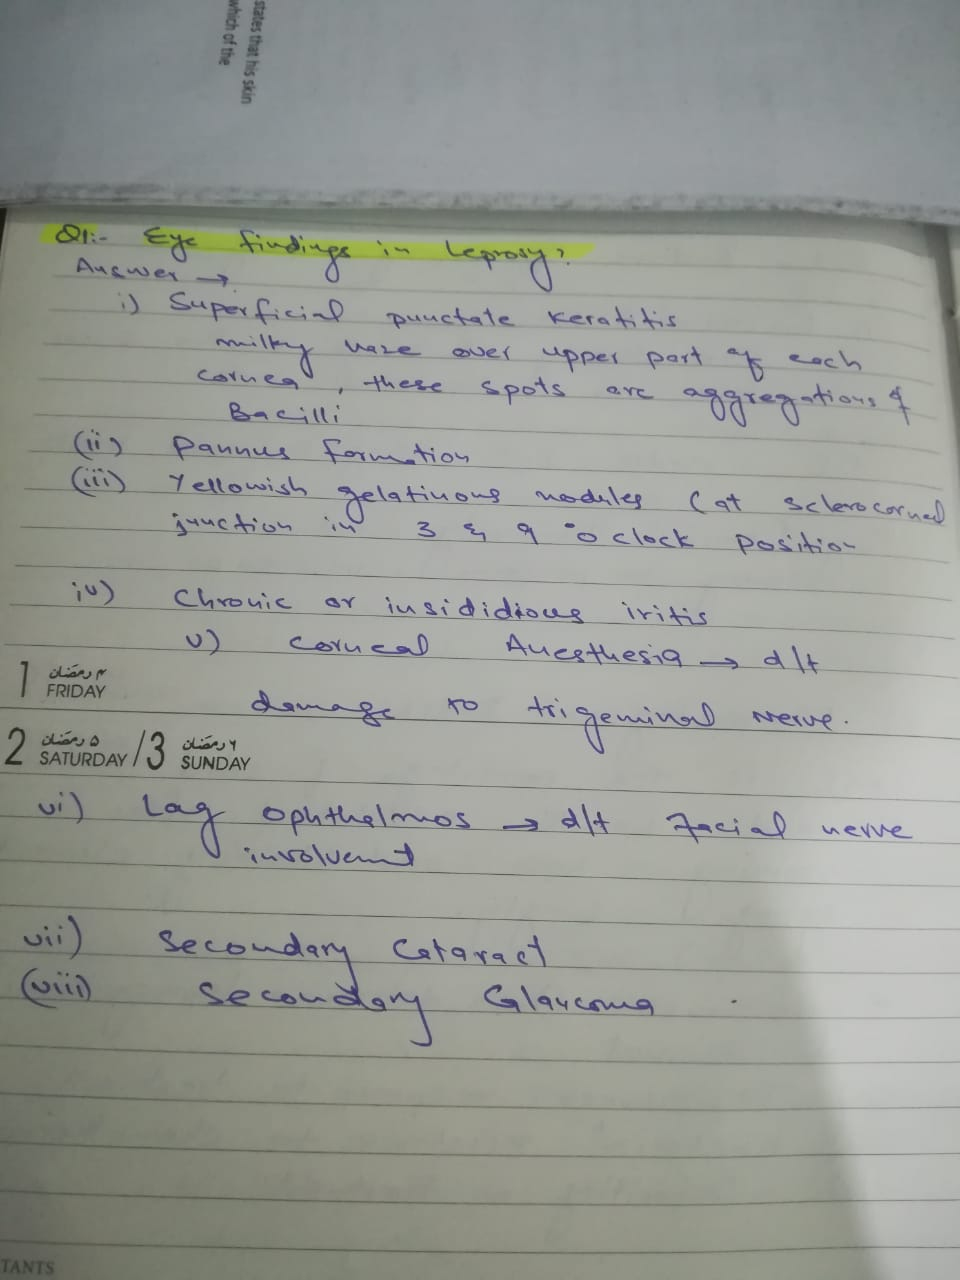 states that his skin
which of the
Q1:- Eye findings in Leprosy?
Answer →
i) Superficial punctate keratitis
milky haze over upper part of each
cornea, these spots are aggregations of
Bacilli
(ii) Pannus formation
(iii) Yellowish gelatinous nodules (at sclerocorneal
junction in 3 & 9 °o clock position
iv) Chronic or insididious iritis
v) Corneal Anesthesia → d/t
1 ٤ رمضان
FRIDAY
damage to trigeminal nerve.
2 ٥ رمضان
SATURDAY / 3 ٦ رمضان
SUNDAY
vi) Lag ophthalmos → d/t facial nerve
involvemt
vii) Secondary Cataract
(viii) Secondary Glaucoma .
TANTS